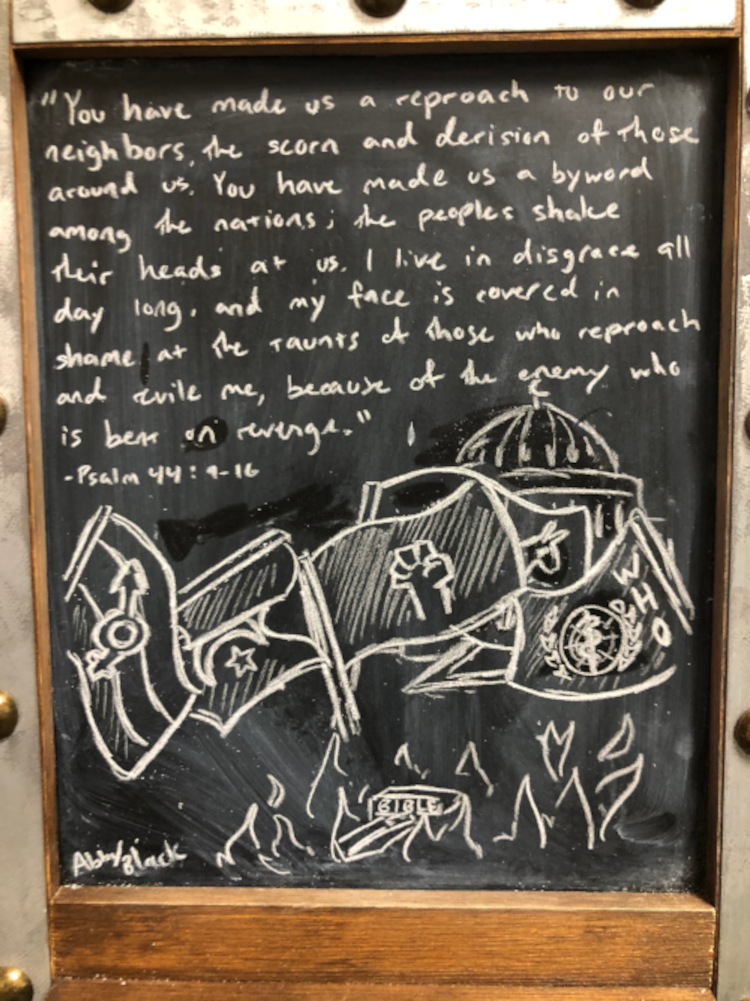 "You have made us a reproach to our
neighbors, the scorn and derision of those
around us. You have made us a byword
among the nations; the peoples shake
their heads at us. I live in disgrace all
day long, and my face is covered in
shame at the taunts of those who reproach
and revile me, because of the enemy who
is bent on revenge."
-Psalm 44:9-16
WHO
BIBLE